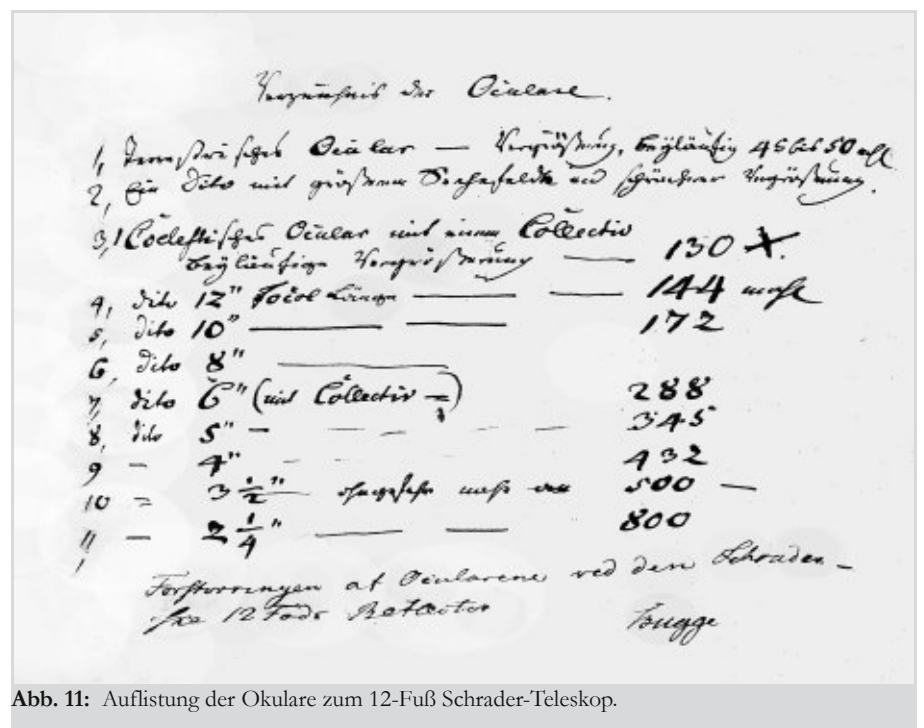 Verzeichnis der Oculare.
1, Terrestrisches Ocular — Vergrößerung, beyläufig 45 bis 50 mhl
2, Ein dito mit größerem Sehefelde und schönerer Vergrößerung.
3, 1 Coelestisches Ocular mit einem Collectiv
beyläufige Vergrößerung — 130 X.
4, dito 12" Focal Länge — — 144 mahl
5, dito 10" — — 172
6, dito 8" —
7, dito 6" (mit Collectiv 288
8, dito 5" — — — — — 345
9 — 4" — — — 432
10 = 3 1/2" ohngefehr mehr 500 —
11, — 2 1/4" — — 800
Forstörringen af Ocularene ved den Schrader-
ske 12 Fods Reflector Bugge
Abb. 11: Auflistung der Okulare zum 12-Fuß Schrader-Teleskop.